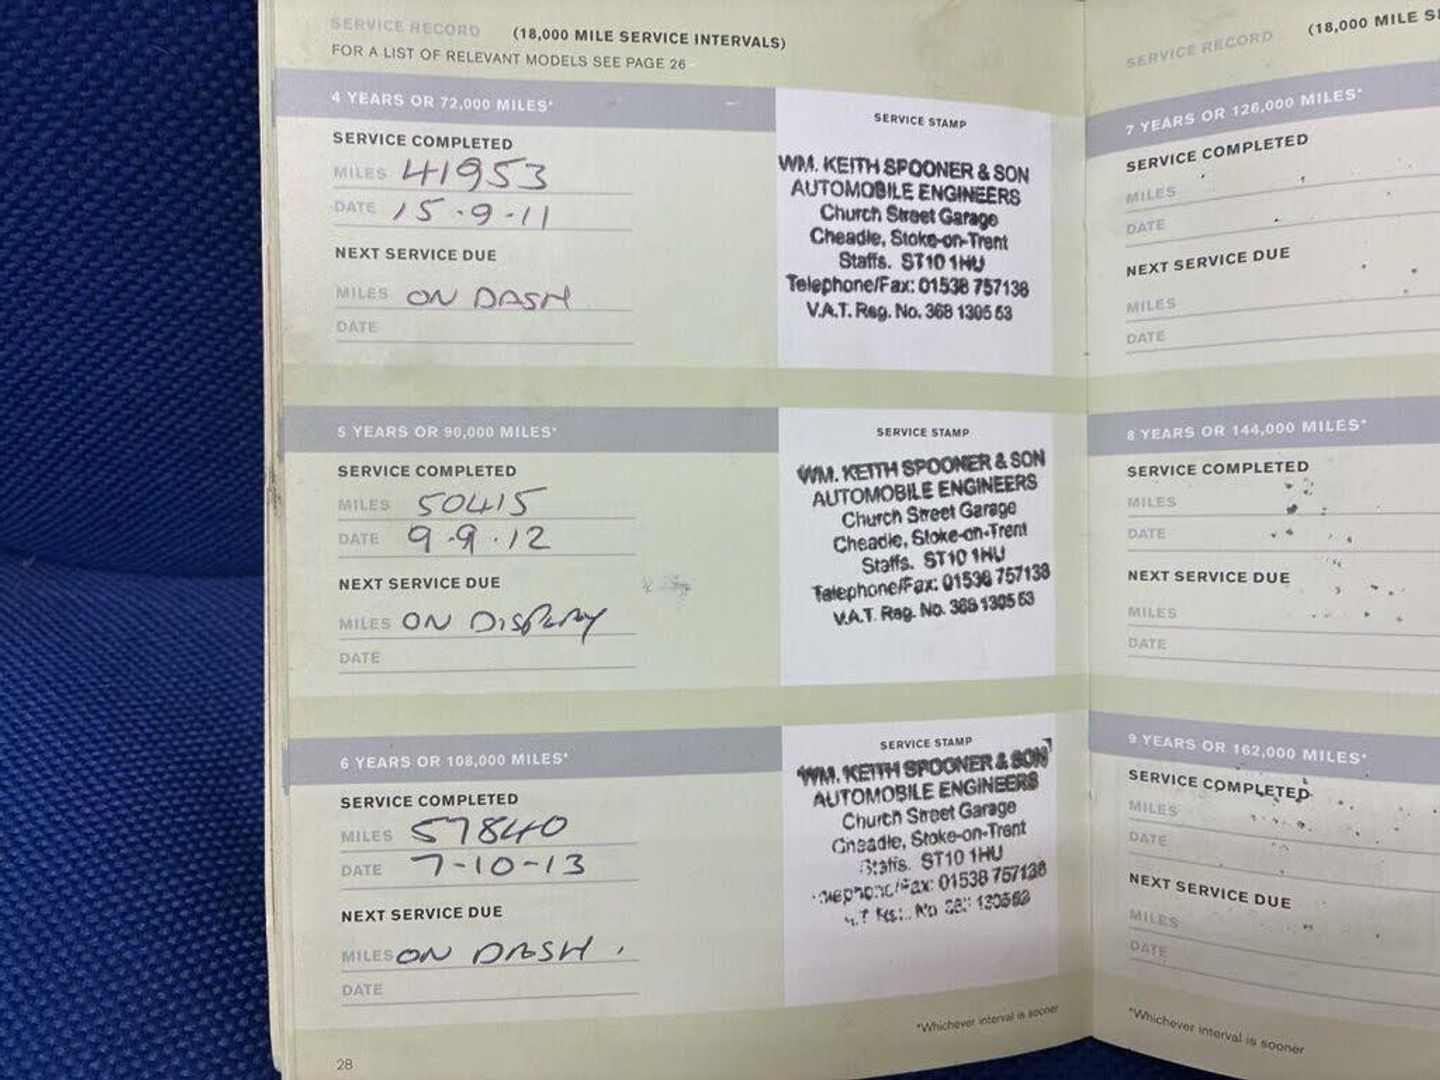 SERVICE RECORD (18,000 MILE SERVICE INTERVALS)
FOR A LIST OF RELEVANT MODELS SEE PAGE 26
4 YEARS OR 72,000 MILES*
SERVICE COMPLETED
MILES 41953
DATE 15.9.11
NEXT SERVICE DUE
MILES ON DASH
DATE
SERVICE STAMP
WM. KEITH SPOONER & SON
AUTOMOBILE ENGINEERS
Church Street Garage
Cheadle, Stoke-on-Trent
Staffs. ST10 1HU
Telephone/Fax: 01538 757138
V.A.T. Reg. No. 368 1305 53
5 YEARS OR 90,000 MILES*
SERVICE COMPLETED
MILES 50415
DATE 9.9.12
NEXT SERVICE DUE
MILES ON DISPLAY
DATE
SERVICE STAMP
WM. KEITH SPOONER & SON
AUTOMOBILE ENGINEERS
Church Street Garage
Cheadle, Stoke-on-Trent
Staffs. ST10 1HU
Telephone/Fax: 01538 757138
V.A.T. Reg. No. 368 1305 53
6 YEARS OR 108,000 MILES*
SERVICE COMPLETED
MILES 57840
DATE 7-10-13
NEXT SERVICE DUE
MILES ON DASH.
DATE
SERVICE STAMP
WM. KEITH SPOONER & SON
AUTOMOBILE ENGINEERS
Church Street Garage
Cheadle, Stoke-on-Trent
Staffs. ST10 1HU
01538 757138
*Whichever interval is sooner
28
SERVICE RECORD (18,000 MILE
7 YEARS OR 126,000 MILES*
SERVICE COMPLETED
MILES
DATE
NEXT SERVICE DUE
MILES
DATE
8 YEARS OR 144,000 MILES*
SERVICE COMPLETED
MILES
DATE
NEXT SERVICE DUE
MILES
DATE
9 YEARS OR 162,000 MILES*
SERVICE COMPLETED
MILES
DATE
NEXT SERVICE DUE
MILES
DATE
*Whichever interval is sooner